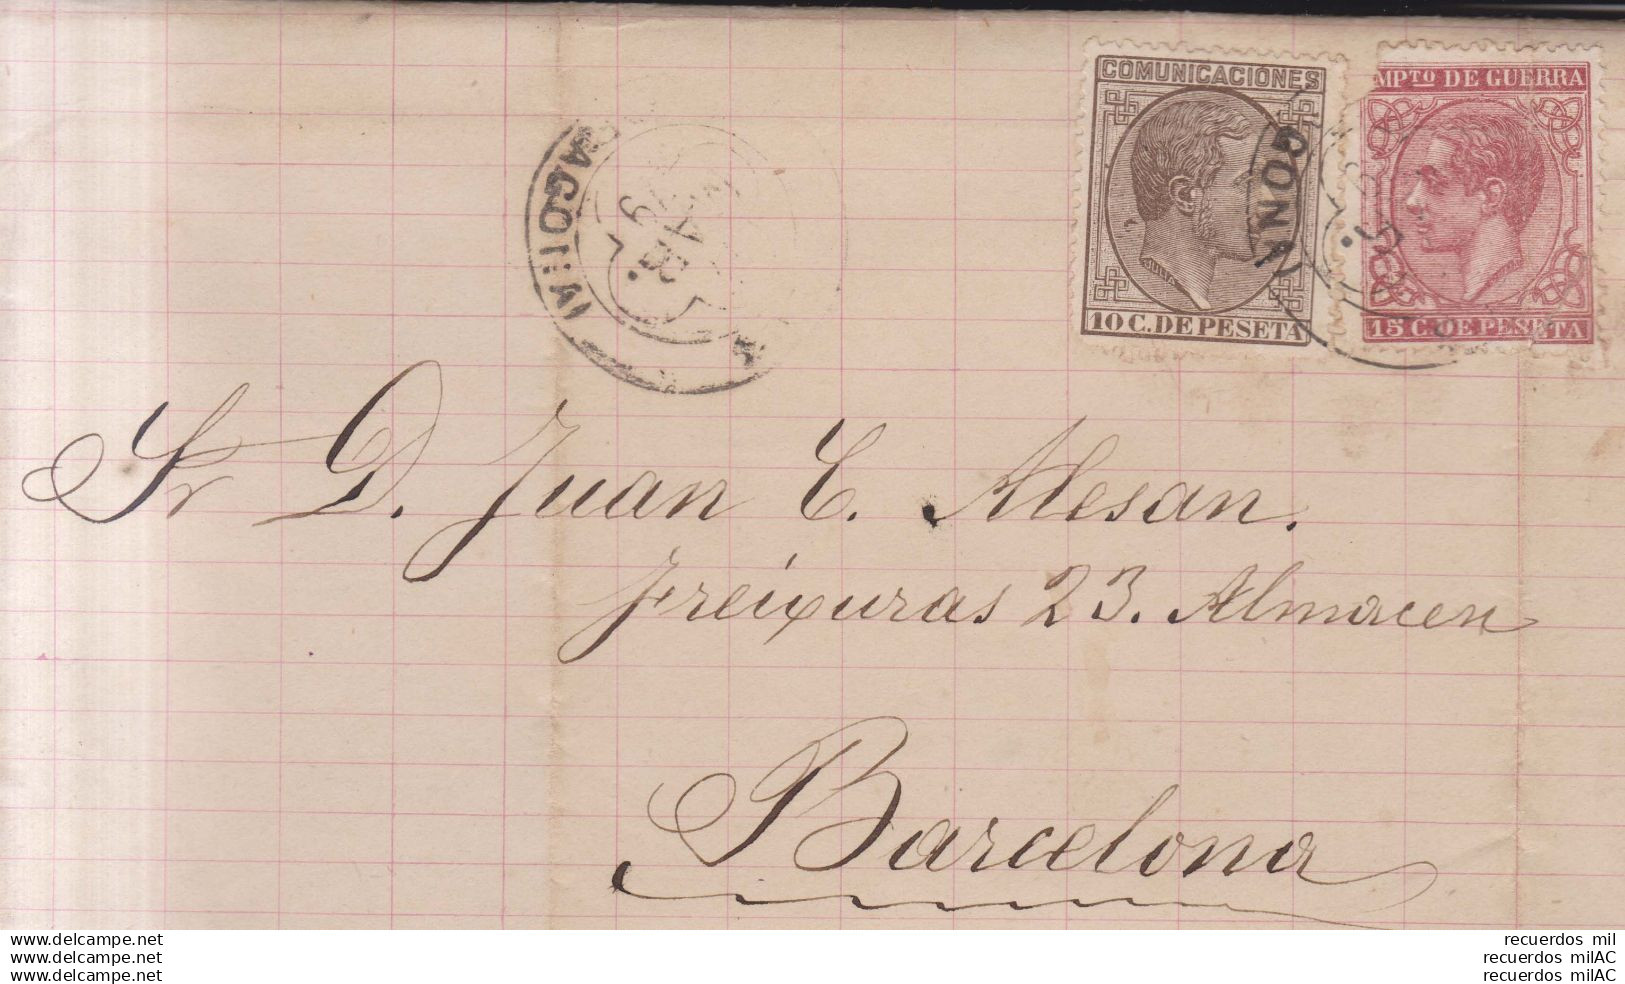 COMUNICACIONES
JULIA
10 C. DE PESETA
MPTO DE GUERRA
15 C. DE PESETA
GONA
Sr D. Juan C. Alesan.
Freixuras 23. Almacen
Barcelona
www.delcampe.net
www.delcampe.net
www.delcampe.net
recuerdos mil
recuerdos milAC
recuerdos milAC